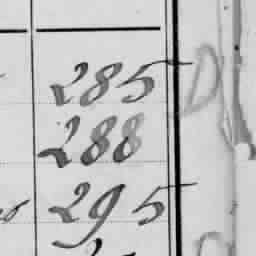 285 D
288
295